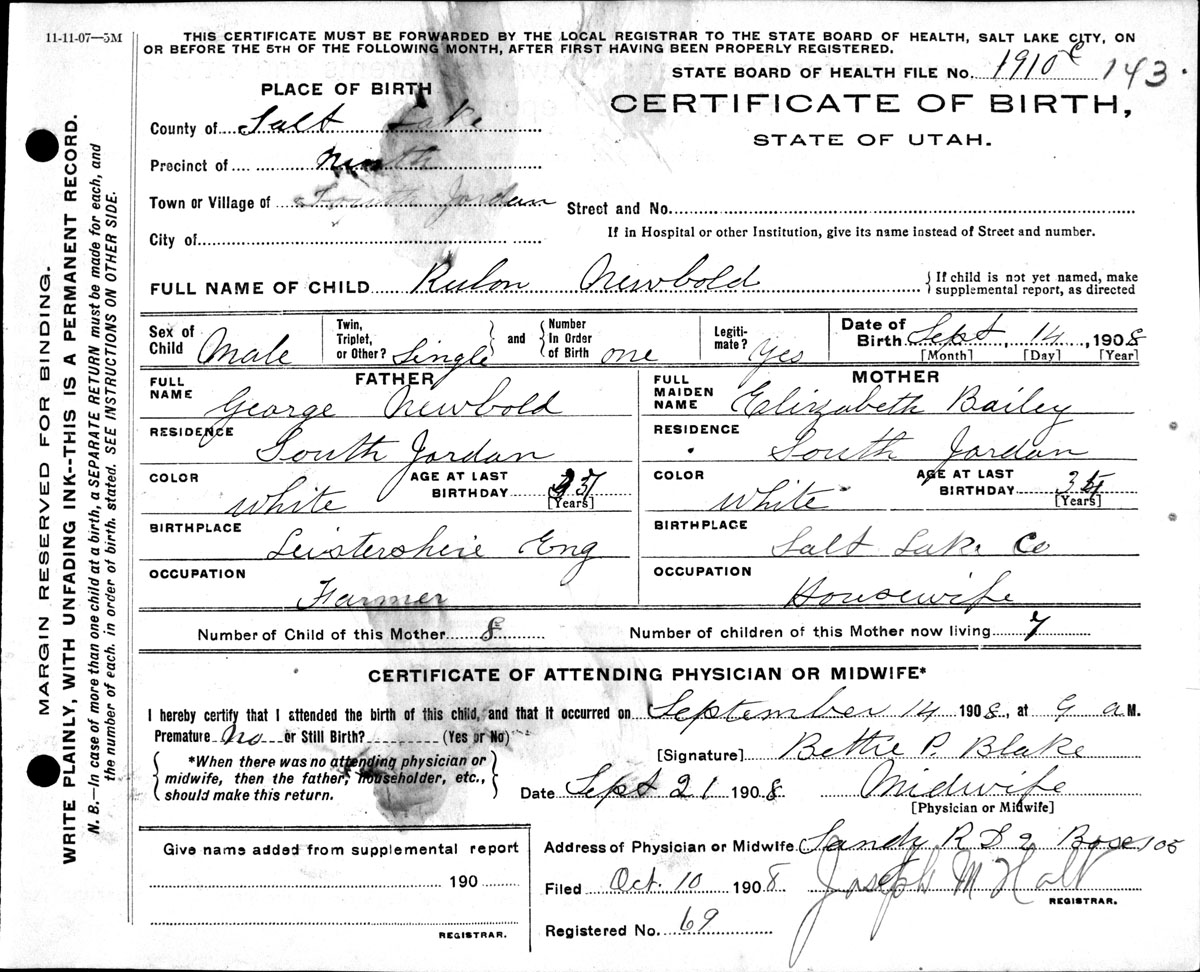 11-11-07—5M
THIS CERTIFICATE MUST BE FORWARDED BY THE LOCAL REGISTRAR TO THE STATE BOARD OF HEALTH, SALT LAKE CITY, ON
OR BEFORE THE 5TH OF THE FOLLOWING MONTH, AFTER FIRST HAVING BEEN PROPERLY REGISTERED.
STATE BOARD OF HEALTH FILE No. 1910 c 143
PLACE OF BIRTH
CERTIFICATE OF BIRTH,
STATE OF UTAH.
County of Salt Lake
Precinct of
Town or Village of Jordan
Street and No.
City of
If in Hospital or other Institution, give its name instead of Street and number.
FULL NAME OF CHILD Rulon Newbold
{If child is not yet named, make
supplemental report, as directed
Sex of Child Male
Twin, Triplet, or Other? Single
and
Number In Order of Birth one
Legiti-mate? Yes
Date of Birth Sept, 14, 1908
[Month] [Day] [Year]
FATHER
FULL NAME George Newbold
RESIDENCE South Jordan
COLOR White
AGE AT LAST BIRTHDAY 37
[Years]
BIRTHPLACE Leistershire Eng
OCCUPATION Farmer
MOTHER
FULL MAIDEN NAME Elizabeth Bailey
RESIDENCE South Jordan
COLOR White
AGE AT LAST BIRTHDAY
[Years]
BIRTHPLACE Salt Lake Co
OCCUPATION Housewife
Number of Child of this Mother 8
Number of children of this Mother now living 7
CERTIFICATE OF ATTENDING PHYSICIAN OR MIDWIFE*
I hereby certify that I attended the birth of this child, and that it occurred on September 14 1908, at 9 a M.
Premature No or Still Birth? (Yes or No)
*When there was no attending physician or
midwife, then the father, householder, etc.,
should make this return.
[Signature] Bettie P. Blake
Date Sept 21 1908
Midwife
[Physician or Midwife]
Give name added from supplemental report
190
REGISTRAR.
Address of Physician or Midwife Sandy R D 2 Box 105
Filed Oct. 10 1908 Joseph M Holt
REGISTRAR.
Registered No. 69
MARGIN RESERVED FOR BINDING.
WRITE PLAINLY, WITH UNFADING INK--THIS IS A PERMANENT RECORD.
N. B.—In case of more than one child at a birth, a SEPARATE RETURN must be made for each, and
the number of each, in order of birth, stated. SEE INSTRUCTIONS ON OTHER SIDE.